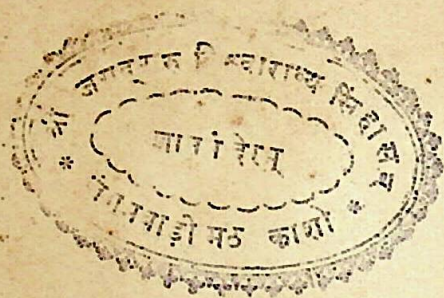 श्री जगद्गुरु विश्वाराध्य सिंहासन
ज्ञान मंदिरम्
जंगमवाड़ी मठ काशी